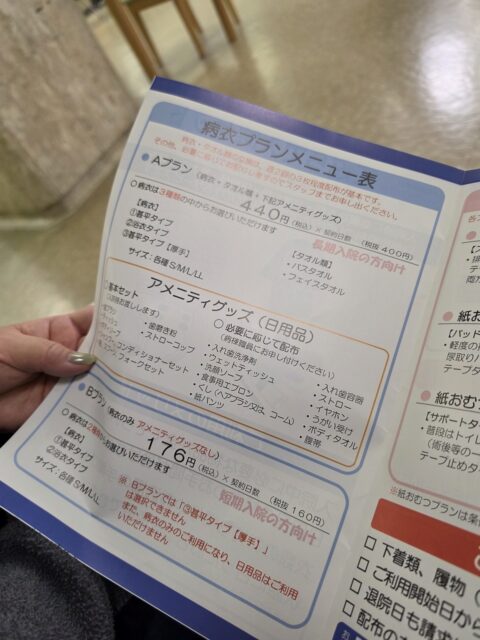 病衣プランメニュー表
病衣・タオル類の交換は、週2回の3枚程度配布が基本です。
その他、必要に応じて配布しますのでスタッフまでお申し出ください。
●Aプラン（病衣＋タオル類＋下記アメニティグッズ）
440円（税込）×契約日数 （税抜 400円）
○病衣は3種類の中からお選びいただけます
長期入院の方向け
【病衣】
①甚平タイプ
②浴衣タイプ
③甚平タイプ【厚手】
サイズ：各種 S/M/L/LL
【タオル類】
・バスタオル
・フェイスタオル
アメニティグッズ（日用品）
基本セット
・歯磨き粉
・ストローコップ
コンディショナーセット
フォークセット
○ 必要に応じて配布
（病棟職員にお申し付けください）
・入れ歯洗浄剤
・ウェットティッシュ
・洗顔ソープ
・食事用エプロン
・くし（ヘアブラシ又は、コーム）
・紙パンツ
・入れ歯容器
・ストロー
・イヤホン
・うがい受け
・ボディタオル
・腹帯
●Bプラン（病衣のみ アメニティグッズなし）
176円（税込）×契約日数 （税抜 160円）
○病衣は2種類からお選びいただけます
短期入院の方向け
【病衣】
①甚平タイプ
②浴衣タイプ
サイズ：各種 S/M/L/LL
※ Bプランでは「③甚平タイプ【厚手】」
は選択できません
また、病衣のみのご利用になり、日用品はご利用
いただけません
● 紙お
【パッド
・軽度の
尿取り
テープ
● 紙おむ
【サポートタ
・普段はトイ
（術後等の一
テープ止めタ
※紙おむつプランは
□ 下着類、履物（
□ ご利用開始日から
□ 退院日も請求
□ 配布の